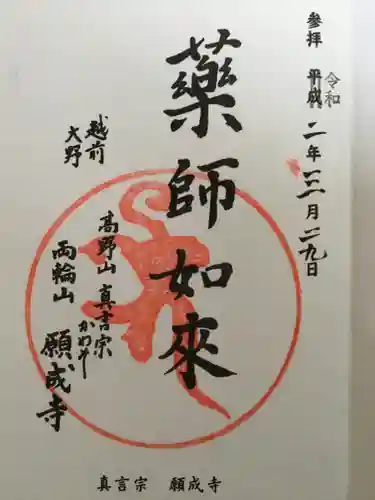 參拜 平成 令和 二年 三月 二九日
藥師如來
越前
大野
高野山 真言宗
両輪山 願成寺
真言宗 願成寺